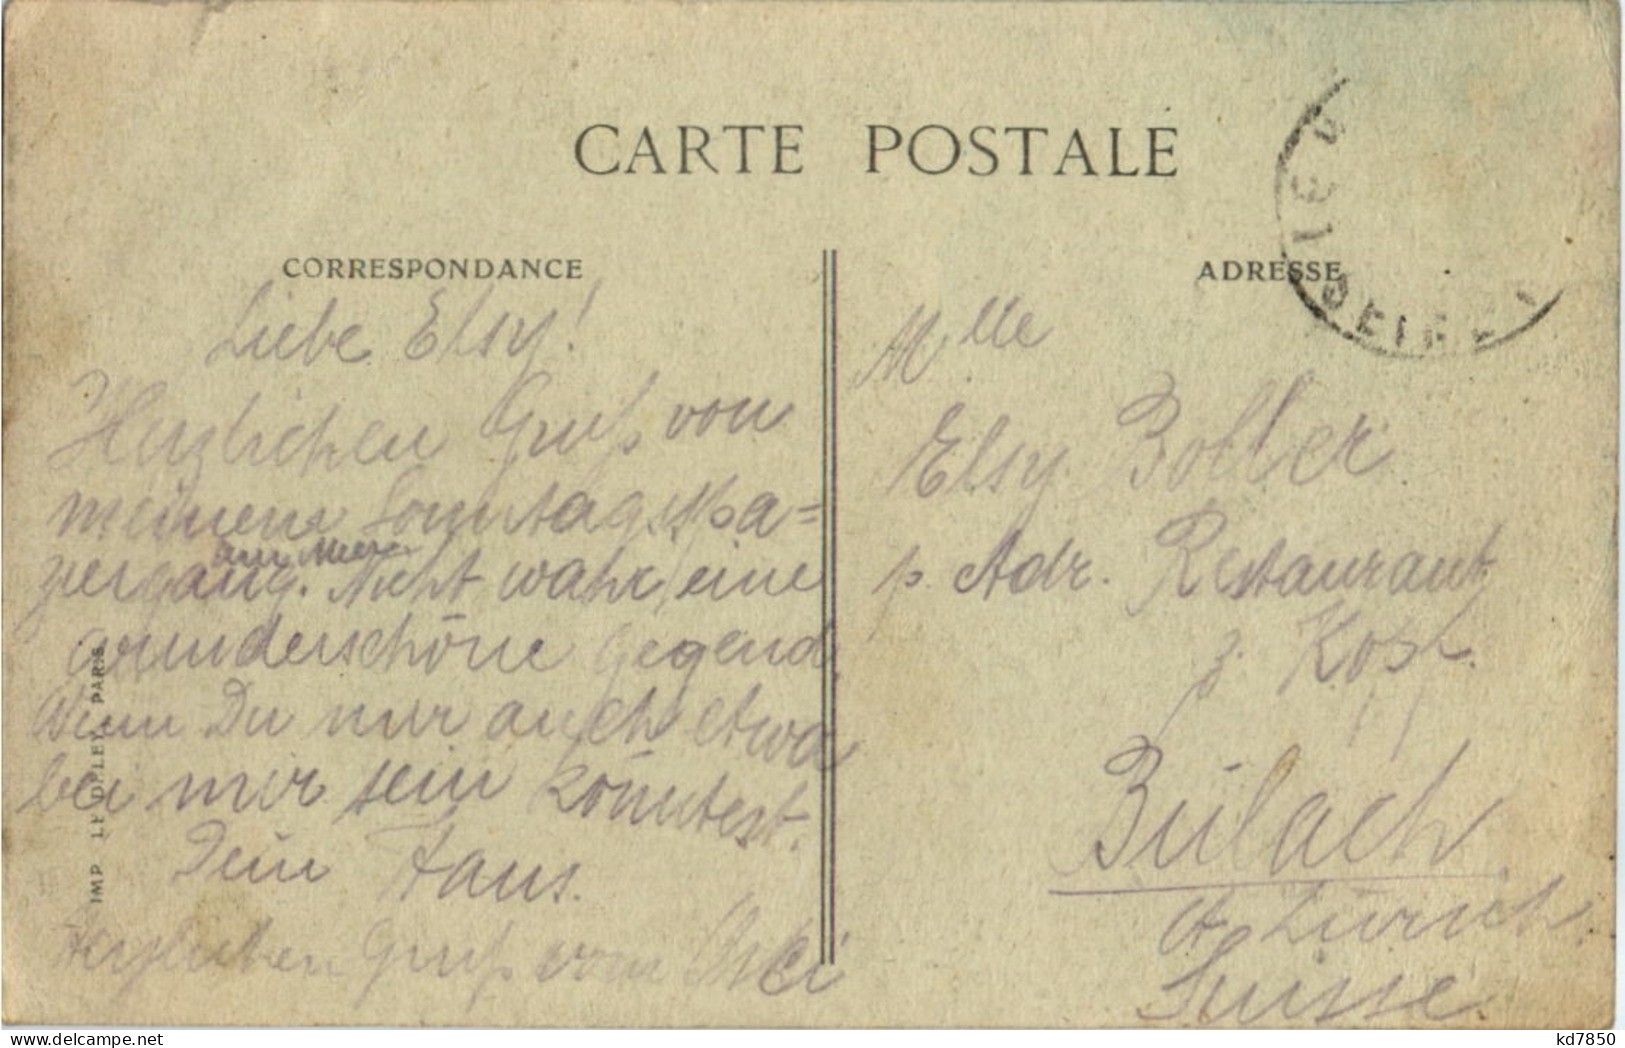 CARTE POSTALE
CORRESPONDANCE
ADRESSE
Liebe Elsy!
Herzlichen Gruß von
meinem Sonntagsspa=
ziergang am Meere. Nicht wahr, eine
wunderschöne Gegend.
Wenn Du nur auch etwa
bei mir sein könntest.
Dein Hans.
Herzlichen Gruß vom
Mlle
Elsy Boller
p. Adr. Restaurant
z. Kost.
Bülach
Ct. Zürich
Suisse.
IMP. LE DELEY, PARIS
kd7850